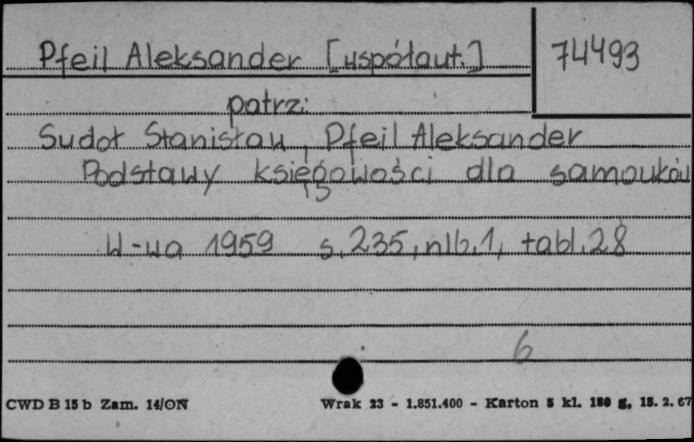 Pfeil Aleksander [współaut.]
74493
patrz:
Sudoł Stanisław, Pfeil Aleksander
Podstawy księgowości dla samouków
W-wa 1959 s. 235, nlb. 1, tabl. 28
6
CWD B 15 b Zam. 14/ON
Wrak 23 - 1.851.400 - Karton 5 kl. 180 g, 15. 2. 67